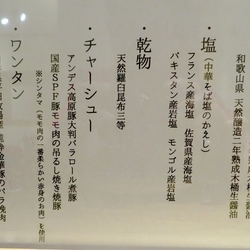 和歌山県 天然醸造二年熟成木桶生醤油
・塩(中華そば塩のかえし)
フランス産海塩 佐賀県産海塩
パキスタン産岩塩 モンゴル産岩塩
・乾物
天然羅臼昆布三等
・チャーシュー
アンデス高原豚大判バラロール煮豚
国産SPF豚モモ肉の吊るし焼き焼豚
※シンタマ(モモ肉の一番柔らかい赤身のお肉)を使用
・ワンタン
純粋金華豚のバラ挽肉